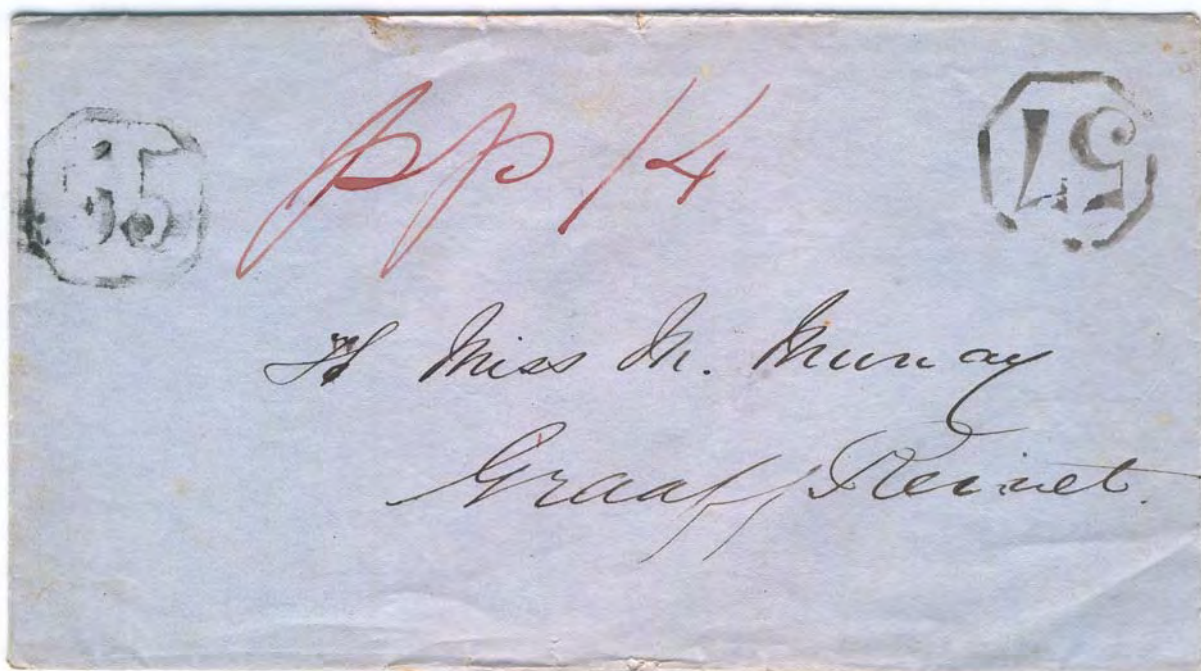 pp /4
57
Miss M. Murray
Graaff Reinet.